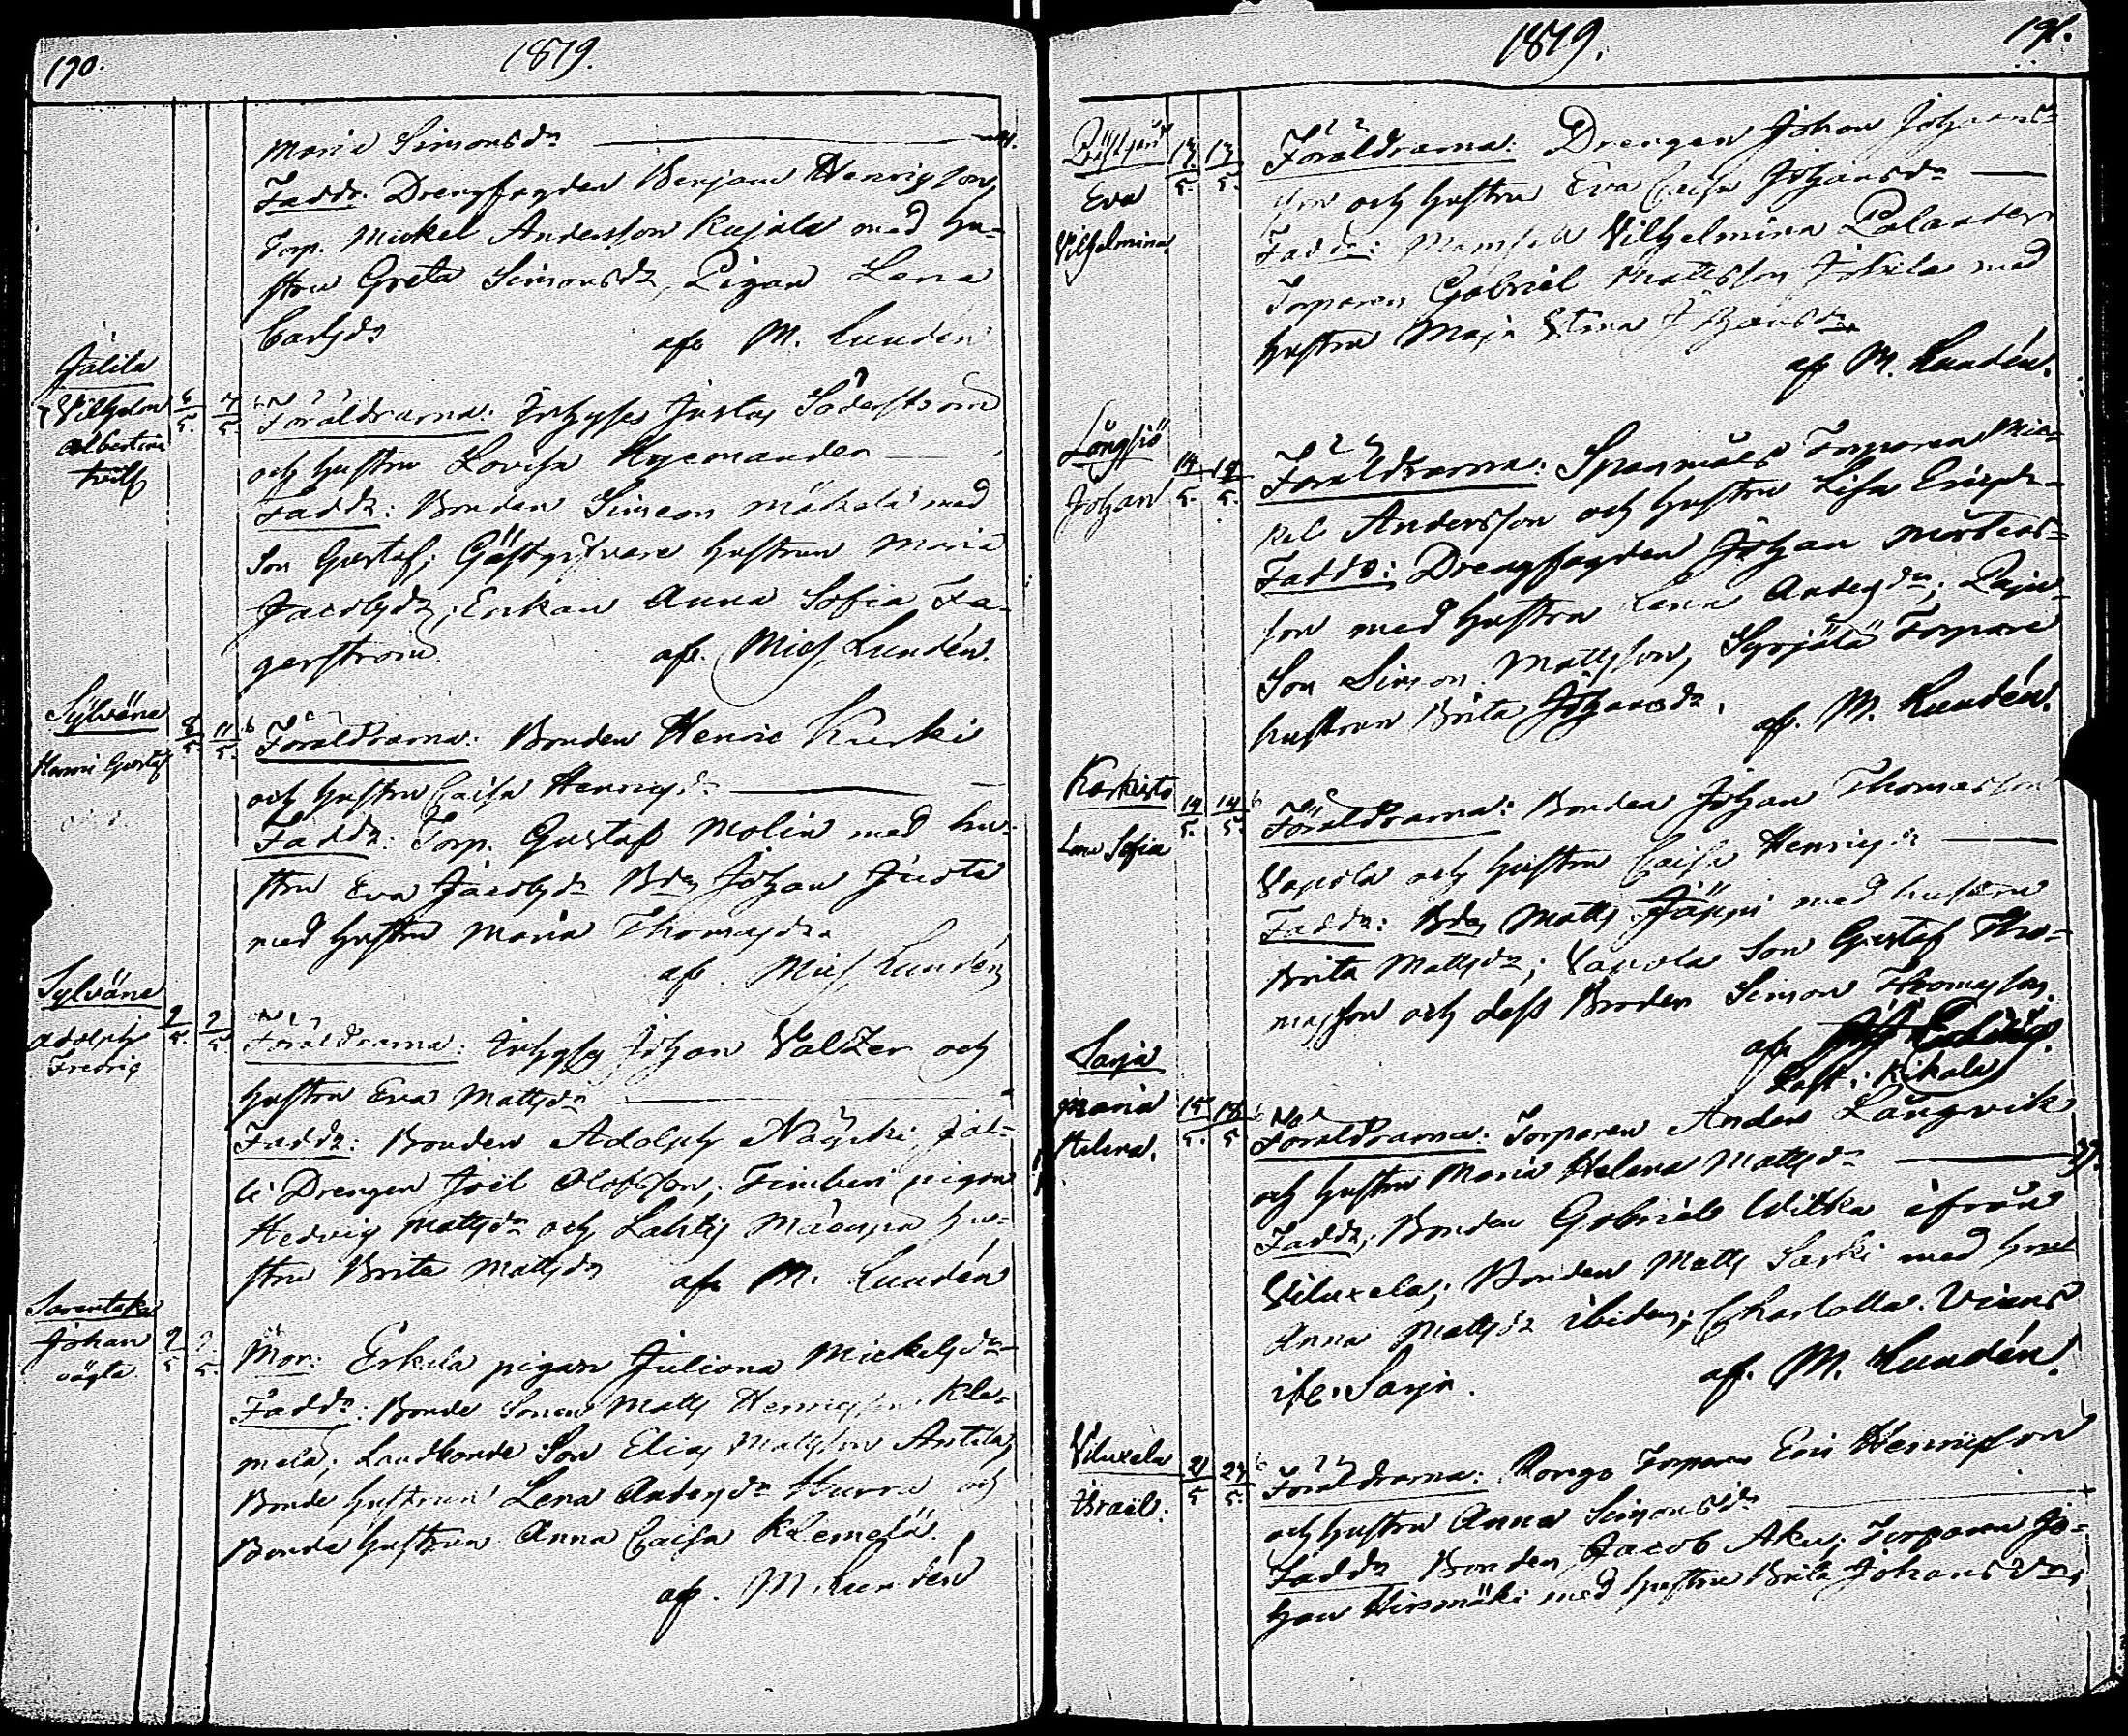 190.
1819.
Maria Simonsdr
Faddr. Drengfogden Benjam Henrigsson,
Torp. Mickel Andersson Kujala med hu-
stru Greta Simonsdr, Pigan Lena
Carlsdr
af M. Lundén
Jälila
Vilhelm
Albertina
6/5. 7/5.
Föräldrarna: Inhyses Justus Söderström
och hustru Lovisa Nycmander
Faddr: Bonden Simeon Mäkelä med
Son Gustaf; Gästgifvare hustrun Maria
Jacobsdr; Enkan Anna Sofia Fa-
gerström.
af. Mich. Lundén.
Sylväne
Henric Gustaf
8/5. 11/5.
Föräldrarna: Bonden Henric Kurki
och hustru Caisa Henrigsdr
Faddr: Torp. Gustaf Molin med hu-
stru Eva Jacobsdr Bdn Johan Juota
med hustru Maria Thomasdr
af. Mich. Lundén
Sylväne
Adolph
Fredric
9/5. 9/5.
Föräldrarna: Inhyses Johan Valzer och
hustru Eva Mattsdr
Faddr: Bonden Adolph Näychi, Jäl-
li Drengen Joil Olofsson; pigan
Hedvig Mattsdr och Lahtis hu-
stru Brita Mattsdr
af M. Lundén
Sarentaka
Johan
oägta
9/5
Mor: Erkilä pigan Juliana Mickelsdr
Faddr: Bonde Sonen Matts Henrigsson Kle-
melä; Landbonde Son Elias Mattsson Antila,
Bonde hustrun Lena Andersdr Hurra och
Bonde hustrun Anna Caisa Klemelä.
af. M. Lundén
1819.
191.
Eva
Vilhelmina
13/5. 13/5.
Föräldrarna: Drengen Johan Johans-
son och hustru Eva Caisa Johansdr
Faddr: Mamsell Vilhelmina Palander
Torparen Gabriel Mattsson Jokila med
hustru Maja Stina Johansdr
af M. Lundén.
Långsjö
Johan
14/5. 14/5.
Föräldrarna: Spannmåls Torparen Mic-
kel Andersson och hustru Lisa Ericsdr
Faddr: Drengfogden Johan Mårtens-
son med hustru Lena Andersdr;
Son Simon Mattsson, Syrjälä Torpare
hustrun Brita Johansdr.
af. M. Lundén.
Koskisto
Lena Sofia
14/5. 14/5.
Föräldrarna: Bonden Johan Thomasson
Vapola och hustru Caisa Henrigsdr
Faddr: Bdn Matts Jäppi med hustru
Brita Mattsdr; Vapola Son Gustaf Tho-
masson och dess Broder Simon Thomasson.
af
Past. i Kikala
Sarja
Maria
Helena.
15/5. 18/5
Föräldrarna: Torparen Anders Långvik
och hustru Maria Helena Mattsdr
Faddr, Bonden Gabriel Witka ifrån
Viluxela; Bonden Matts Sarki med hust
Anna Mattsdr ibidem; Charlotta
ifr. Sarja.
af. M. Lundén.
Viluxela
Israel.
21/5 27/5.
Föräldrarna: Torparen Eric Henrigsson
och hustru Anna Simonsdr
Faddr Bonden Jacob Aku; Torparen Jo-
han Hirsmäki med hustru Brita Johansdr,